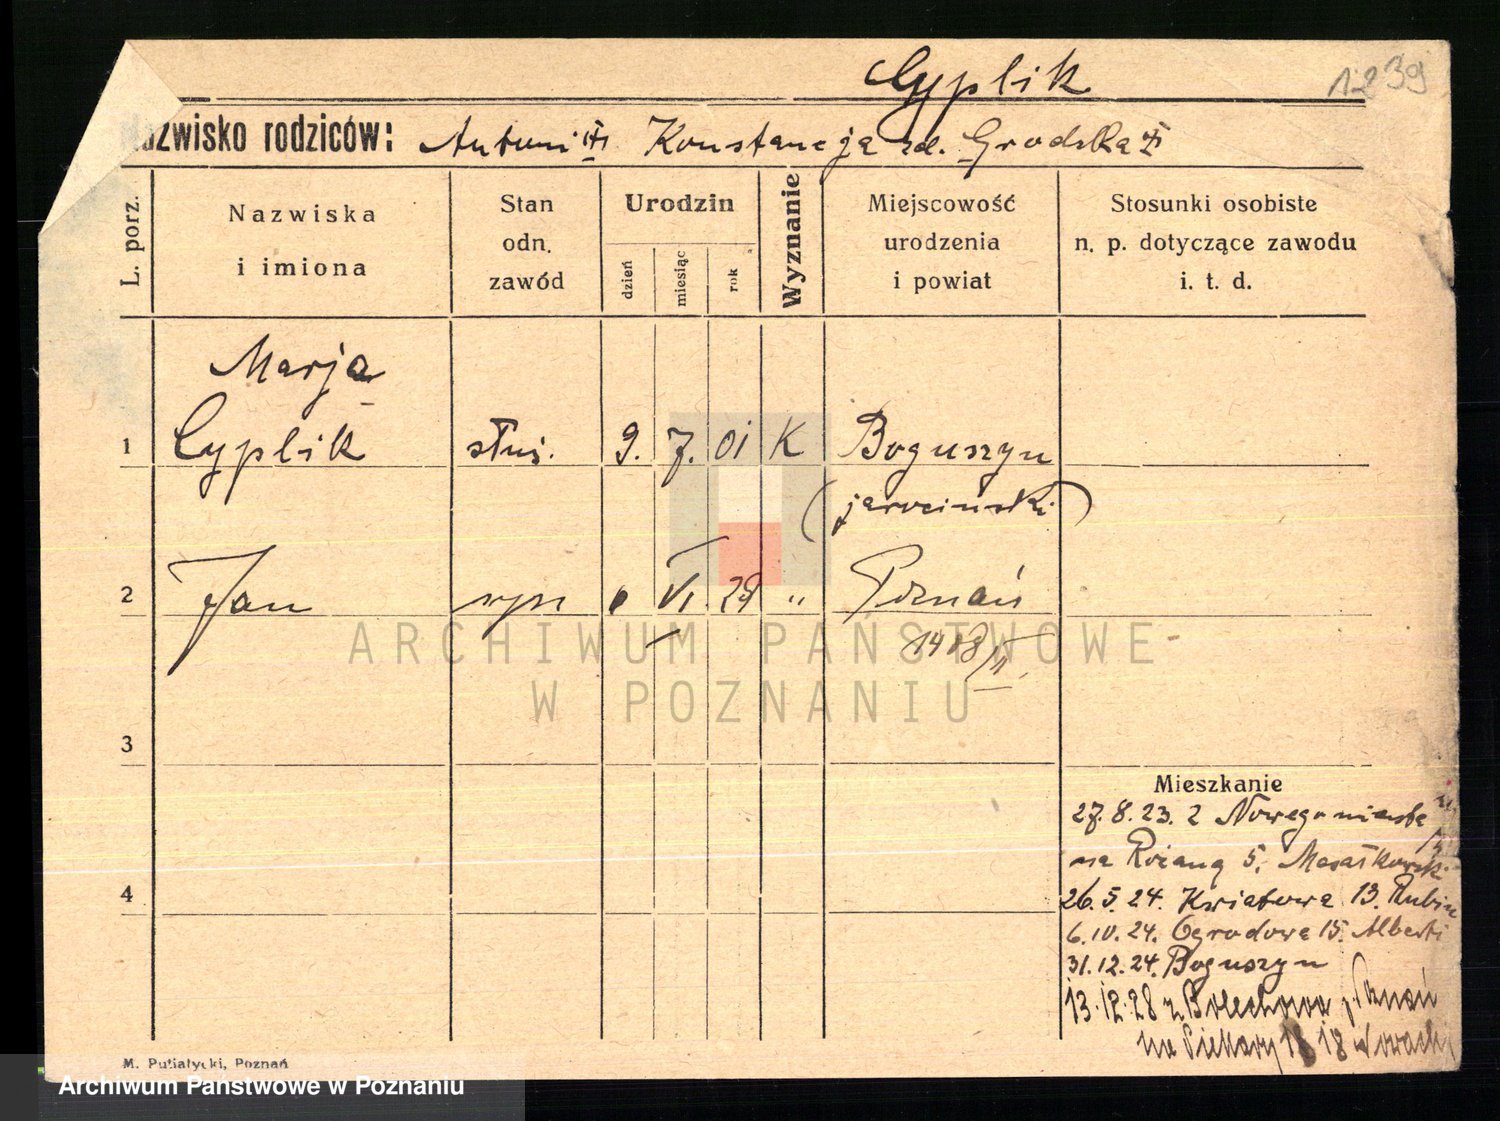 Cyplik 1239
Nazwisko rodziców: Antoni Konstancja zd. Grodzka
L. porz.
Nazwiska
i imiona
Stan
odn.
zawód
Urodzin
dzień
miesiąc
rok
Wyznanie
Miejscowość
urodzenia
i powiat
Stosunki osobiste
n. p. dotyczące zawodu
i. t. d.
Marja
1 Cyplik służ. 9. 7. 01 K Boguszyn
(jarociński)
2 Jan syn VI. 28 " Poznań
1418/II.
3
4
Mieszkanie
27. 8. 23. z Nowego miasta
na Różaną 5.
26. 5. 24. Kwiatowa 13. Rubin
6. 10. 24. Ogrodowa 15. Alberti
31. 12. 24. Boguszyn
13. 12. 28 z Bolechowa p. Poznań
na Piekary 18
ARCHIWUM PAŃSTWOWE
W POZNANIU
M. Putiatycki, Poznań
Archiwum Państwowe w Poznaniu